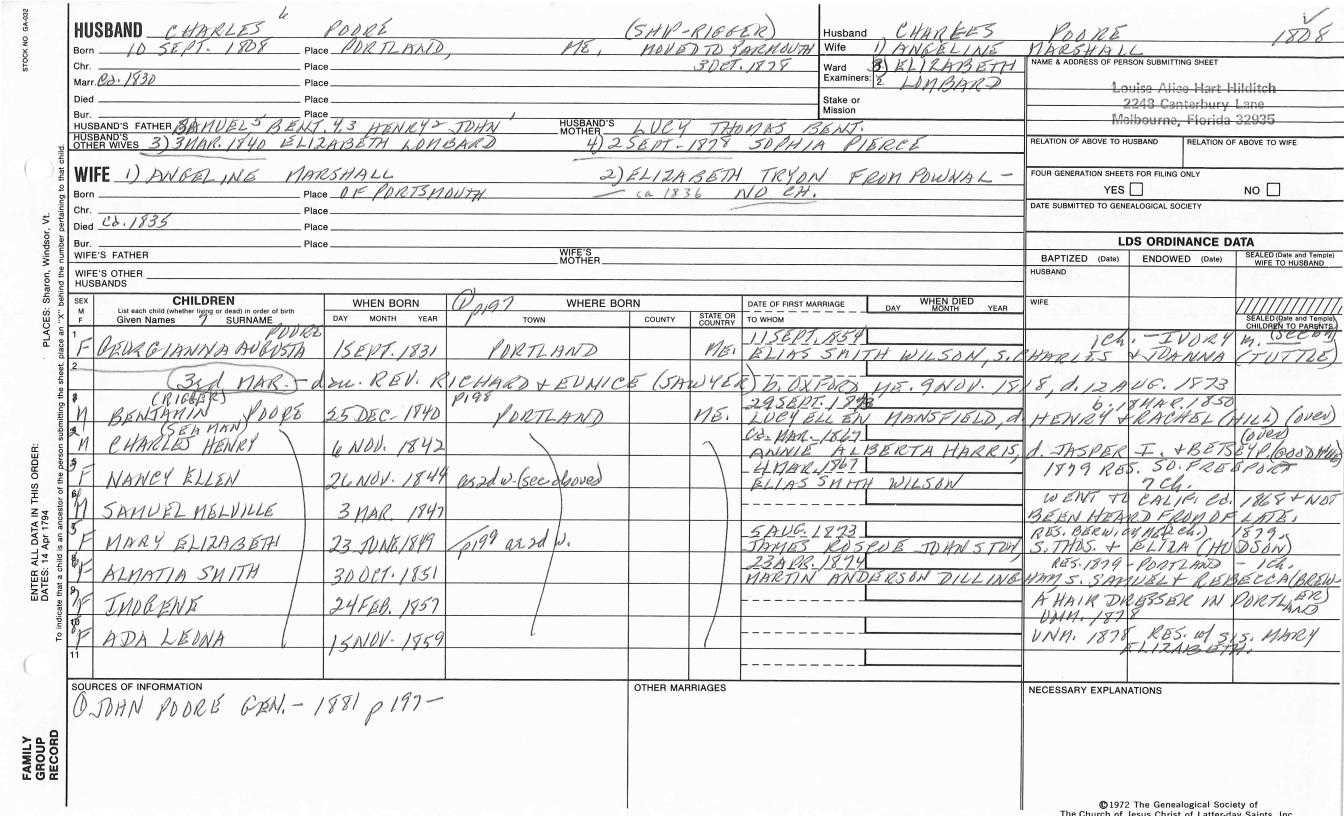 STOCK NO. GA-032
PLACES: Sharon, Windsor, Vt.
ENTER ALL DATA IN THIS ORDER:
DATES: 14 Apr 1794
To indicate that a child is an ancestor of the person submitting the sheet, place an "X" behind the number pertaining to that child.
FAMILY GROUP RECORD
HUSBAND CHARLES 6 POORE (SHIP-RIGGER)
Born 10 SEPT. 1808 Place PORTLAND, ME, MOVED TO YARMOUTH
Chr. Place 3 OCT. 1878
Marr. Ca. 1830 Place
Died Place
Bur. Place
HUSBAND'S FATHER SAMUEL 5 BENJ. 4,3 HENRY 2 JOHN 1 HUSBAND'S MOTHER LUCY THOMAS BENT.
HUSBAND'S OTHER WIVES 3) 3 MAR. 1840 ELIZABETH LOMBARD 4) 2 SEPT. 1878 SOPHIA PIERCE
WIFE 1) ANGELINE MARSHALL 2) ELIZABETH TRYON FROM POWNAL -
Born Place OF PORTSMOUTH ca 1836 NO CH.
Chr. Place
Died Ca. 1835 Place
Bur. Place
WIFE'S FATHER WIFE'S MOTHER
WIFE'S OTHER HUSBANDS
Husband CHARLES POORE 1808
Wife 1) ANGELINE MARSHALL
Ward 3) ELIZABETH
Examiners: 2. LOMBARD
Stake or Mission
NAME & ADDRESS OF PERSON SUBMITTING SHEET
Louise Alice Hart Hilditch
2243 Canterbury Lane
Melbourne, Florida 32935
RELATION OF ABOVE TO HUSBAND RELATION OF ABOVE TO WIFE
FOUR GENERATION SHEETS FOR FILING ONLY
YES NO
DATE SUBMITTED TO GENEALOGICAL SOCIETY
LDS ORDINANCE DATA
BAPTIZED (Date) ENDOWED (Date) SEALED (Date and Temple) WIFE TO HUSBAND
HUSBAND
WIFE
SEALED (Date and Temple) CHILDREN TO PARENTS
SEX M F CHILDREN WHEN BORN 1 p197 WHERE BORN DATE OF FIRST MARRIAGE WHEN DIED
List each child (whether living or dead) in order of birth
Given Names 7 SURNAME DAY MONTH YEAR TOWN COUNTY STATE OR COUNTRY TO WHOM DAY MONTH YEAR
1 POORE 11 SEPT. 1854 1 CH. - IVORY m.
F GEORGIANNA AUGUSTA 1 SEPT. 1831 PORTLAND ME. ELIAS SMITH WILSON, S. CHARLES & JOANNA (TUTTLE)
2 3rd MAR. - dau. REV. RICHARD & EUNICE (SAWYER) b. OXFORD ME. 9 NOV. 1818, d. 12 AUG. 1873
(RIGGER) p198 b. 18 MAR. 1850
M BENJAMIN POORE 25 DEC. 1840 PORTLAND ME. LUCY ELLEN MANSFIELD, d HENRY & RACHEL (HILL) (OVER)
(SEAMAN) Ca. MAR. 1867 (OVER)
M CHARLES HENRY 6 NOV. 1842 ANNIE ALBERTA HARRIS, d. JASPER I. & BETSEY P.
4 MAR. 1867 1879 RES. SO. FREEPORT
F NANCY ELLEN 26 NOV. 1844 as 2d w. (see above) ELIAS SMITH WILSON 7 CH.
M SAMUEL MELVILLE 3 MAR. 1847 WENT TO CALIF. Ca. 1868 & NOT BEEN HEARD FROM OF LATE.
5 AUG. 1873 1879.
F MARY ELIZABETH 23 JUNE 1849 p199 as 2d w. JAMES ROSCOE JOHNSTON S. THOS. & ELIZA (HUDSON)
23 APR. 1874 RES. 1879 - PORTLAND - 1 CH.
F ALMATIA SMITH 30 OCT. 1851 MARTIN ANDERSON DILLINGHAM, S. SAMUEL & REBECCA (BREWER)
F IMOGENE 24 FEB. 1857 A HAIR DRESSER IN PORTLAND UNM. 1878
10 F ADA LEONA 15 NOV. 1859 UNM. 1878 RES. w/ SIS. MARY ELIZABETH.
11
SOURCES OF INFORMATION OTHER MARRIAGES NECESSARY EXPLANATIONS
1 JOHN POORE GEN. - 1881 p 197 -
©1972 The Genealogical Society of
The Church of Jesus Christ of Latter-day Saints, Inc.